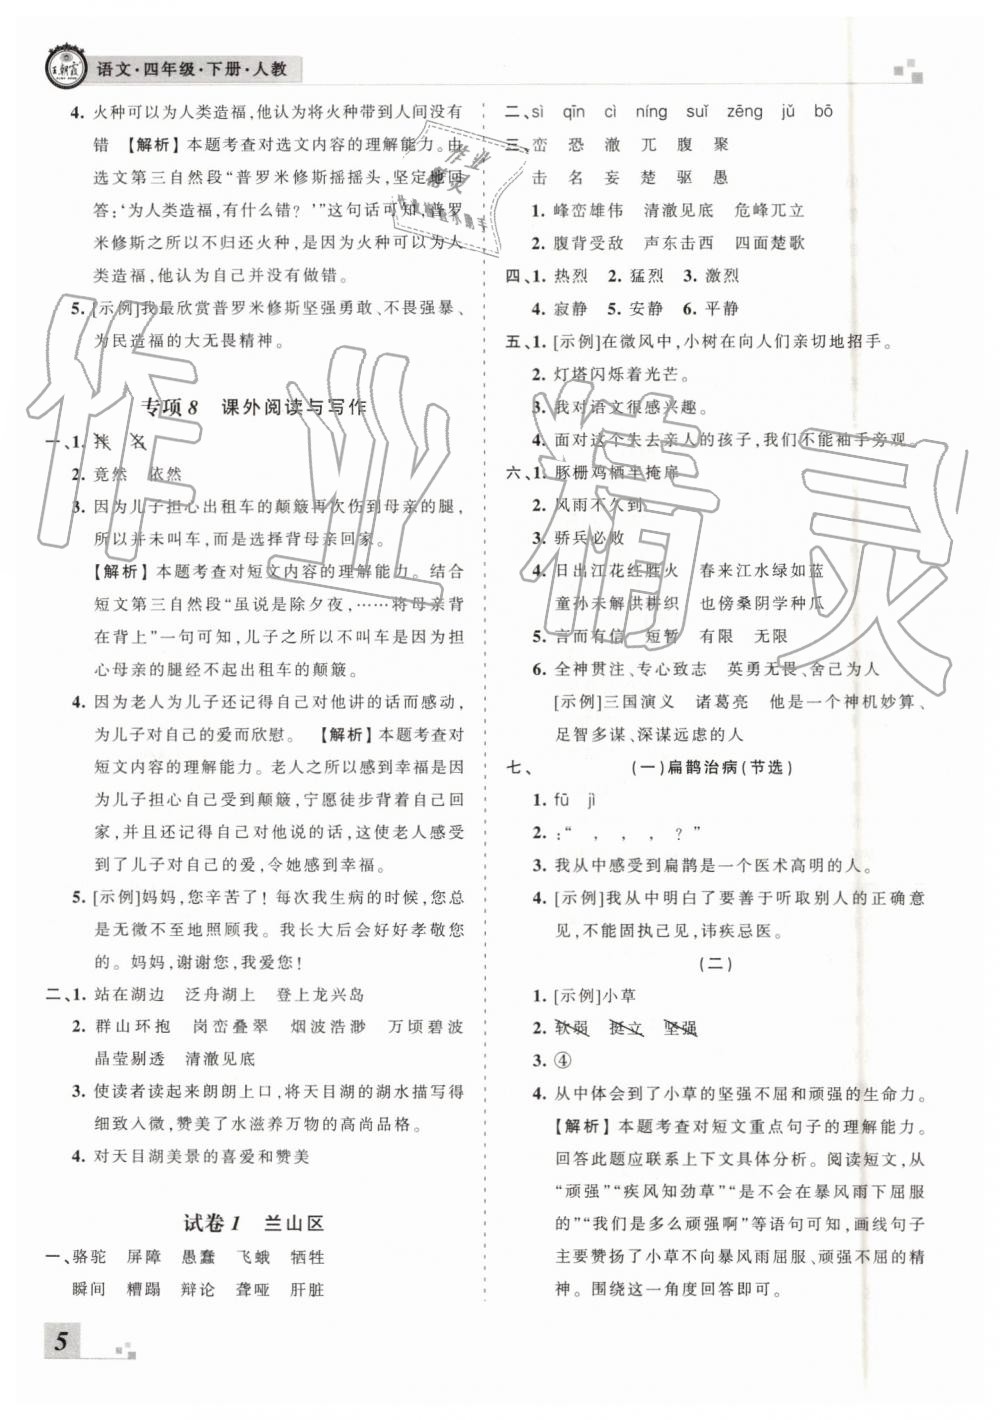 王朝霞
语文·四年级·下册·人教
4. 火种可以为人类造福,他认为将火种带到人间没有
错 【解析】本题考查对选文内容的理解能力。由
选文第三自然段“普罗米修斯摇摇头,坚定地回
答:‘为人类造福,有什么错?’”这句话可知,普罗
米修斯之所以不归还火种,是因为火种可以为人
类造福,他认为自己并没有做错。
5. [示例]我最欣赏普罗米修斯坚强勇敢、不畏强暴、
为民造福的大无畏精神。
专项8 课外阅读与写作
一、1.
2. 竟然 依然
3. 因为儿子担心出租车的颠簸再次伤到母亲的腿,
所以并未叫车,而是选择背母亲回家。
【解析】本题考查对短文内容的理解能力。结合
短文第三自然段“虽说是除夕夜,……将母亲背
在背上”一句可知,儿子之所以不叫车是因为担
心母亲的腿经不起出租车的颠簸。
4. 因为老人为儿子还记得自己对他讲的话而感动,
为儿子对自己的爱而欣慰。 【解析】本题考查对
短文内容的理解能力。老人之所以感动是因为
为儿子担心自己受到颠簸,宁愿徒步背着自己回
家,并且还记得自己对他说的话,这使老人感受
到了儿子对自己的爱,令她感到幸福。
5. [示例]妈妈,您辛苦了!每次我生病的时候,您总
是无微不至地照顾我。我长大后会好好孝敬您
的。妈妈,谢谢您,我爱您!
二、1. 站在湖边 泛舟湖上 登上龙兴岛
2. 群山环抱 岗峦叠翠 烟波浩渺 万顷碧波
晶莹剔透 清澈见底
3. 使读者读起来朗朗上口,将天目湖的湖水描写得
细致入微,赞美了水滋养万物的高尚品格。
4. 对天目湖美景的喜爱和赞美
试卷1 兰山区
一、骆驼 屏障 愚蠢 飞蛾 牺牲
瞬间 糟蹋 辩论 聋哑 肝脏
5
二、sì qīn cì níng suǐ zēng jǔ bō
三、峦 恐 澈 兀 腹 聚
击 名 妄 楚 驱 愚
1. 峰峦雄伟 清澈见底 危峰兀立
2. 腹背受敌 声东击西 四面楚歌
四、1. 热烈 2. 猛烈 3. 激烈
4. 寂静 5. 安静 6. 平静
五、1. [示例]在微风中,小树在向人们亲切地招手。
2. 灯塔闪烁着光芒。
3. 我对语文很感兴趣。
4. 面对这个失去亲人的孩子,我们不能袖手旁观。
六、1. 豚栅鸡栖半掩扉
2. 风雨不久到
3. 骄兵必败
4. 日出江花红胜火 春来江水绿如蓝
童孙未解供耕织 也傍桑阴学种瓜
5. 言而有信 短暂 有限 无限
6. 全神贯注、专心致志 英勇无畏、舍己为人
[示例]三国演义 诸葛亮 他是一个神机妙算、
足智多谋、深谋远虑的人
七、 (一)扁鹊治病(节选)
1. fū jì
2. :“ , , , ? ”
3. 我从中感受到扁鹊是一个医术高明的人。
4. [示例]我从中明白了要善于听取别人的正确意
见,不能固执己见,讳疾忌医。
(二)
1. [示例]小草
2. 软弱 挺立 坚强
3. ④
4. 从中体会到了小草的坚强不屈和顽强的生命力。
【解析】本题考查对短文重点句子的理解能力。
回答此题应联系上下文具体分析。阅读短文,从
“顽强”“疾风知劲草”“是不会在暴风雨下屈服
的”“与暴风雨作斗争,多顽强啊”等语句可知,画线句子
主要赞扬了小草不向暴风雨屈服、顽强不屈的精
神。围绕这一角度回答即可。
作业精灵